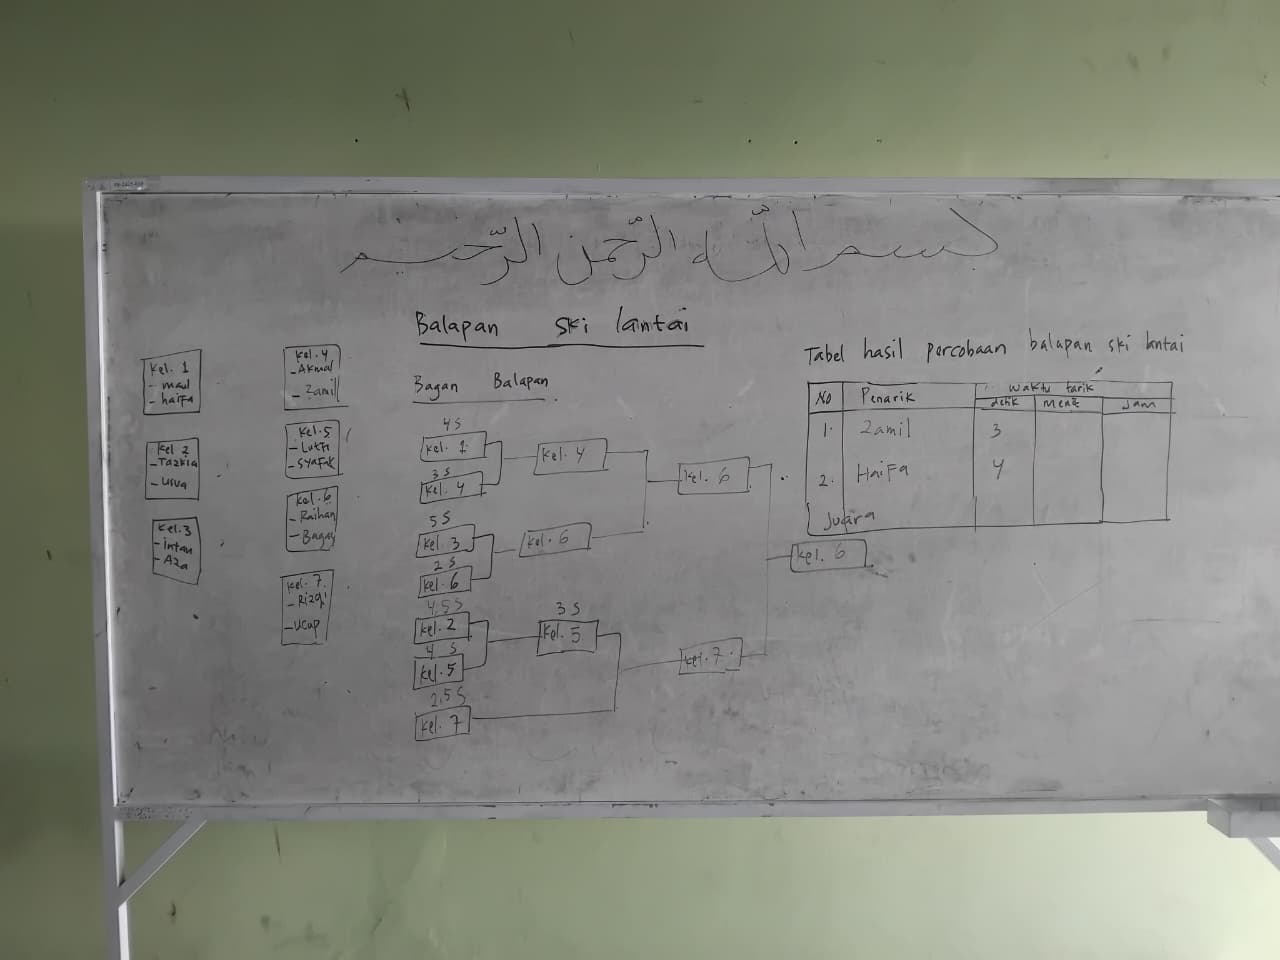 بسم اللّه الرّحمن الرّحيم
Balapan ski lantai
Kel. 1
- maul
- haifa
Kel 2
- Tazkia
- Usva
Kel.3
- Intan
- Aza
Kel. 4
- Akmal
- Zamil
Kel.5
- Lutfi
- Syafak
Kel. 6
- Raihan
- Bagas
Kel. 7
- Rizqi
- Ucup
Bagan Balapan
4 s
Kel. 1
3 s
Kel. 4
5 s
Kel. 3
2 s
Kel. 6
4,5 s
Kel. 2
4 s
Kel. 5
2,5 s
Kel. 7
Kel. 4
Kel. 6
3 s
Kel. 5
Kel. 6
Kel. 7
Kel. 6
Tabel hasil percobaan balapan ski lantai
No Penarik Waktu tarik
detik Menit Jam
1. Zamil 3
2. Haifa 4
Juara